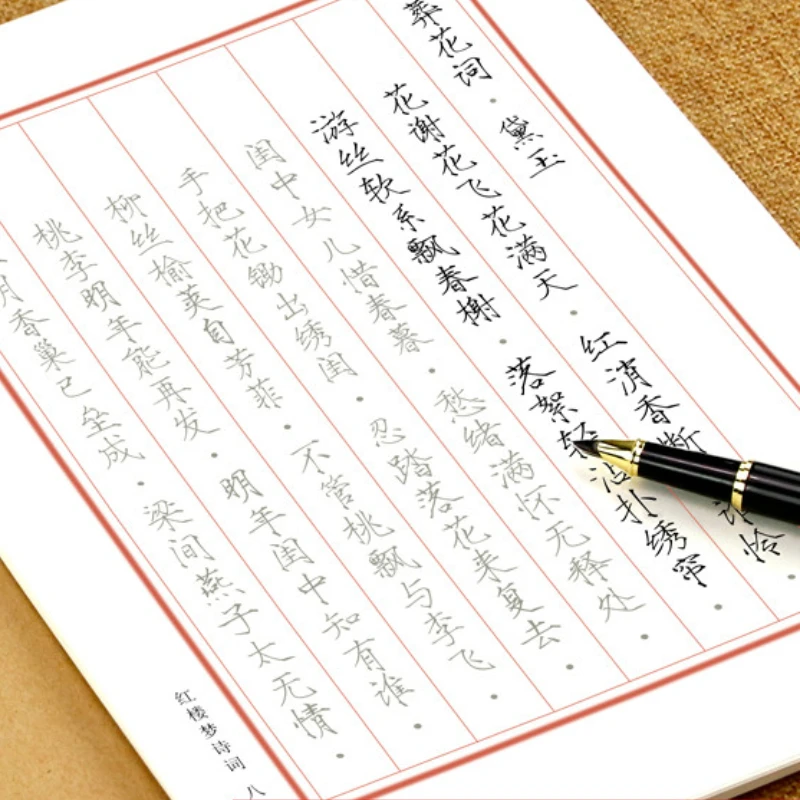 葬花词·黛玉
花谢花飞花满天·红消香断谁怜·
游丝软系飘春榭·落絮轻沾扑绣帘·
闺中女儿惜春暮·愁绪满怀无释处·
手把花锄出绣闺·忍踏落花来复去·
柳丝榆荚自芳菲·不管桃飘与李飞·
桃李明年能再发·明年闺中知有谁·
月香巢已垒成·梁间燕子太无情·
红楼梦诗词 八